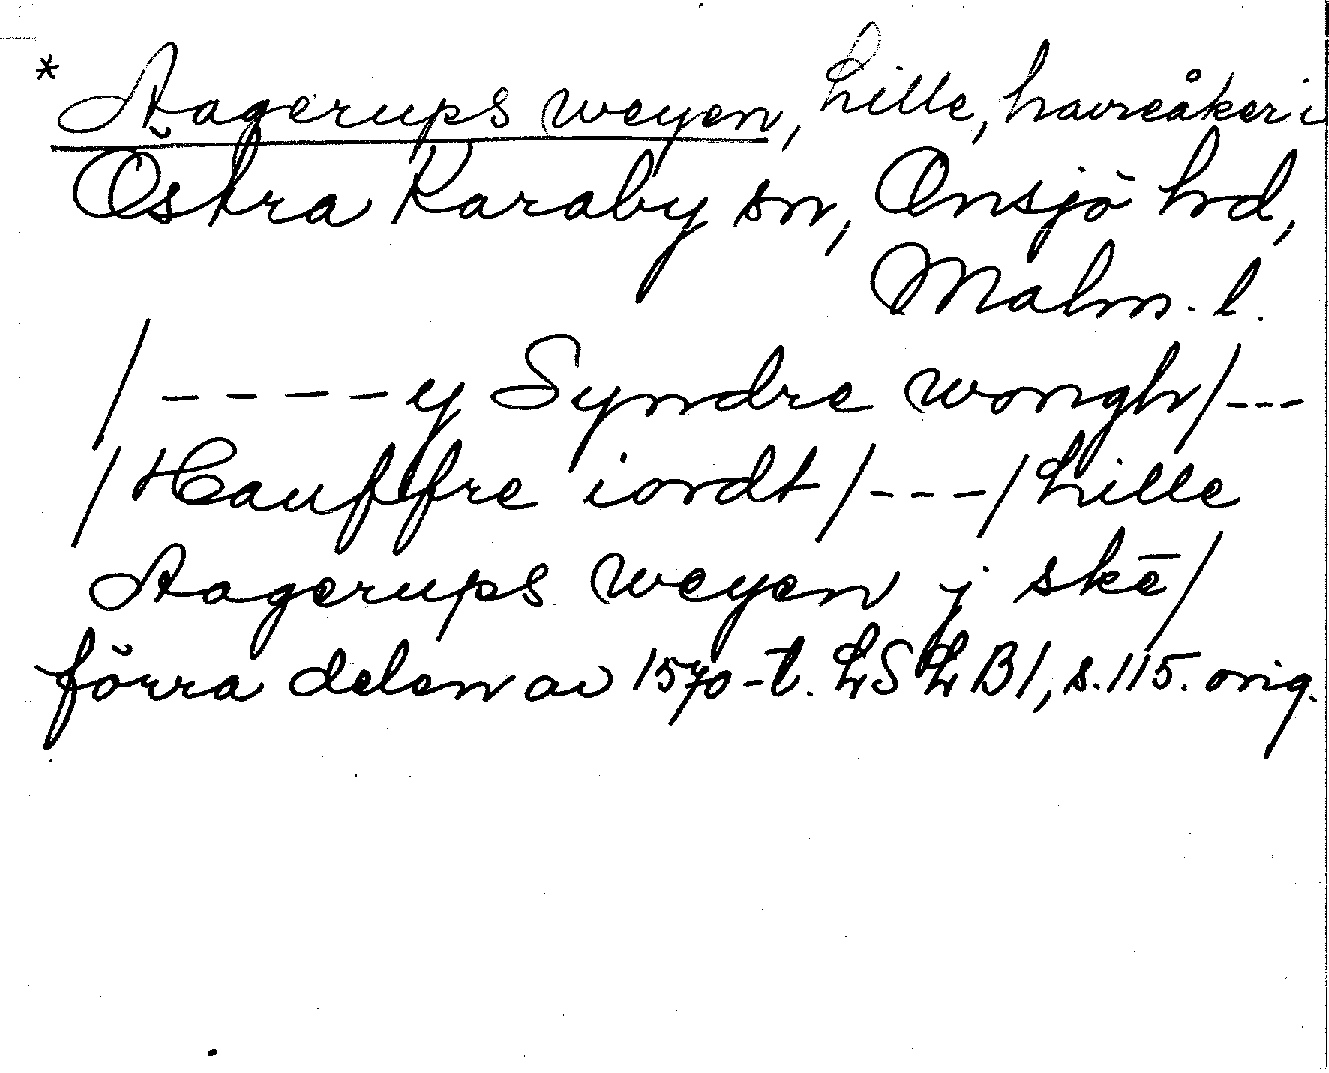 * Aagerups weyen, Lille, havreåker i
Östra Karaby sn, Onsjö hd,
Malm. l.
/ - - - - y Syndre wongh/---
/Hauffre iordt/---/Lille
Aagerups weyen j skē/
förra delen av 1570-t. LSLB1, s.115. orig.